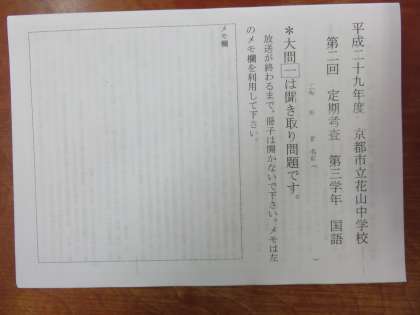 平成二十九年度　京都市立花山中学校
第二回　定期考査　第三学年　国語
＊大問一は聞き取り問題です。
放送が終わるまで、冊子は開かないで下さい。メモは左
のメモ欄を利用して下さい。
メモ欄